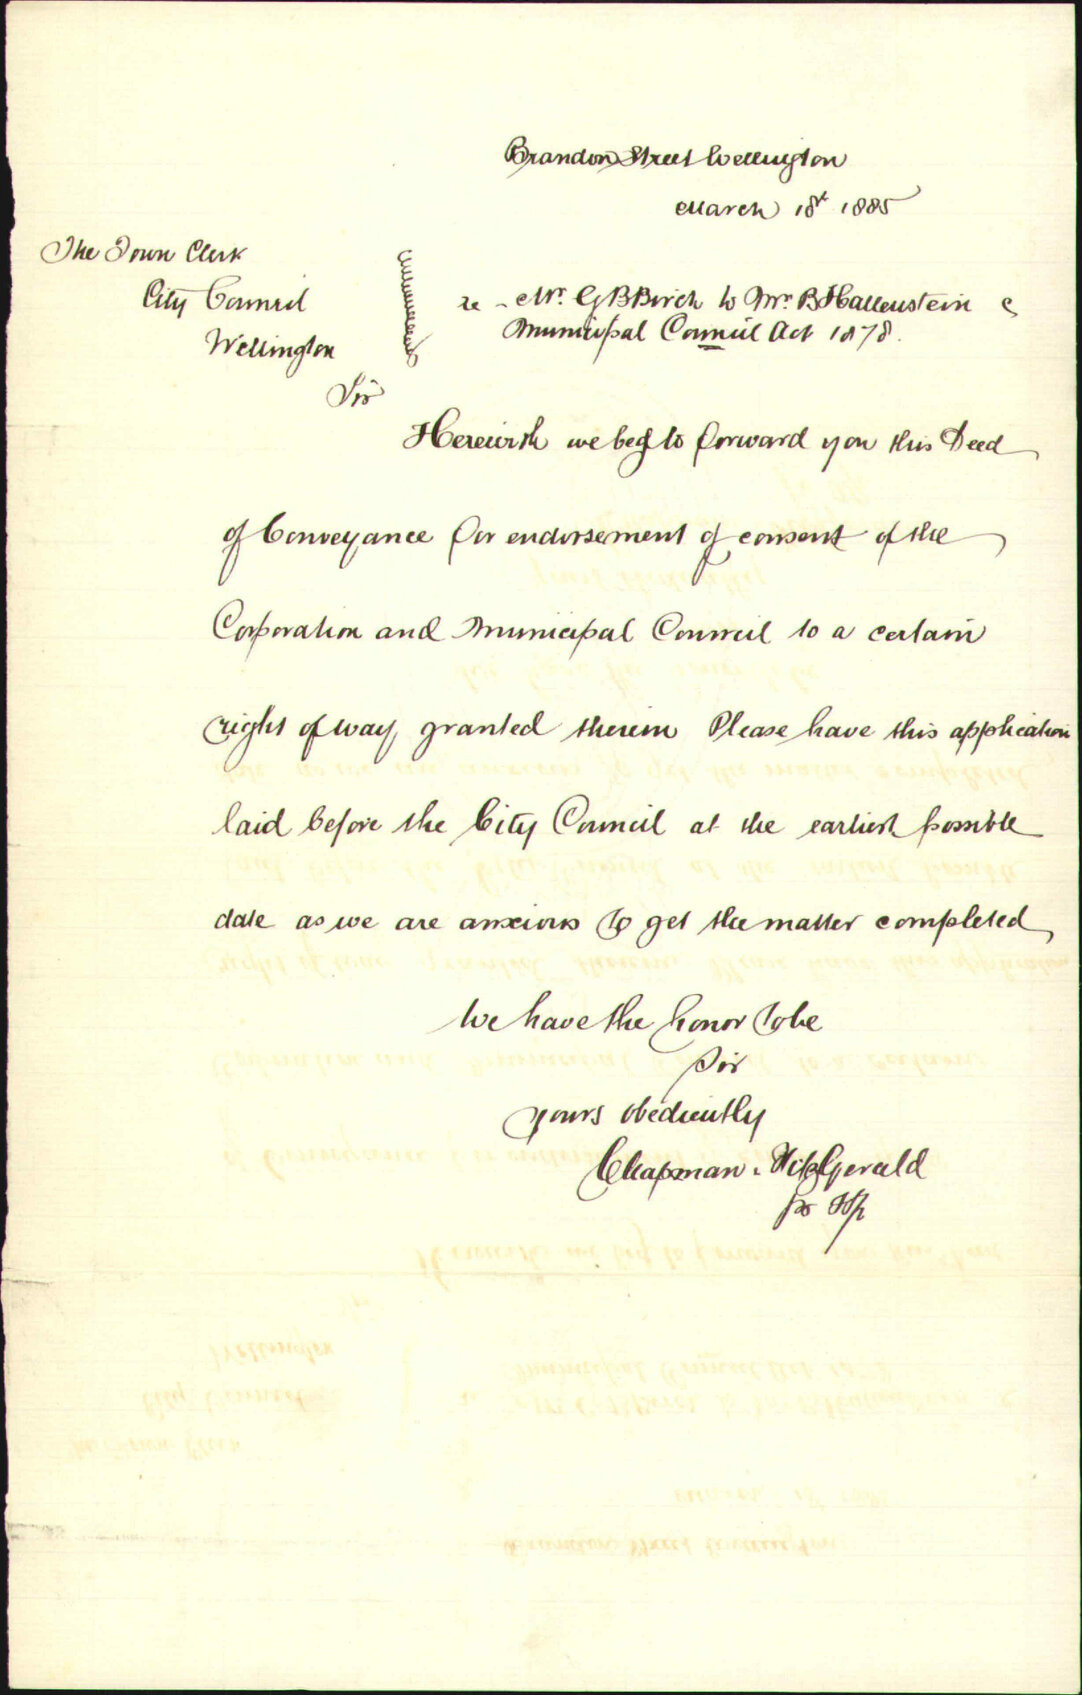 Brandon Street Wellington
March 18th 1885
The Town Clerk
City Council
Wellington
re - Mr. G B Birch to Mr. B Hallenstein &
Municipal Council Act 1878.
Sir
Herewith we beg to forward you this Deed
of Conveyance for endorsement of consent of the
Corporation and Municipal Council to a certain
right of way granted therein Please have this application
laid before the City Council at the earliest possible
date as we are anxious to get the matter completed
We have the honor to be
Sir
yours obediently
Chapman & FitzGerald